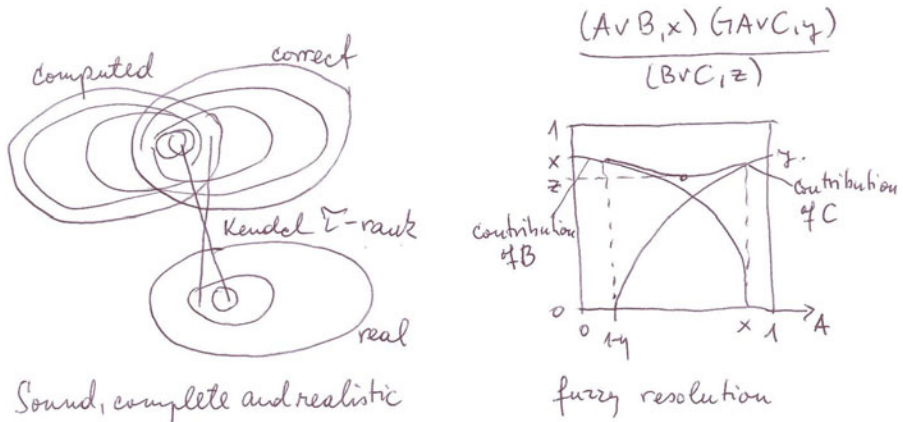 computed
correct
Kendel τ-rank
real
Sound, complete and realistic
(A∨B,x) (¬A∨C,y)
(B∨C,z)
1
x
z
y.
contribution
of B
contribution
of C
0
0
1-y
x
1
A
fuzzy resolution